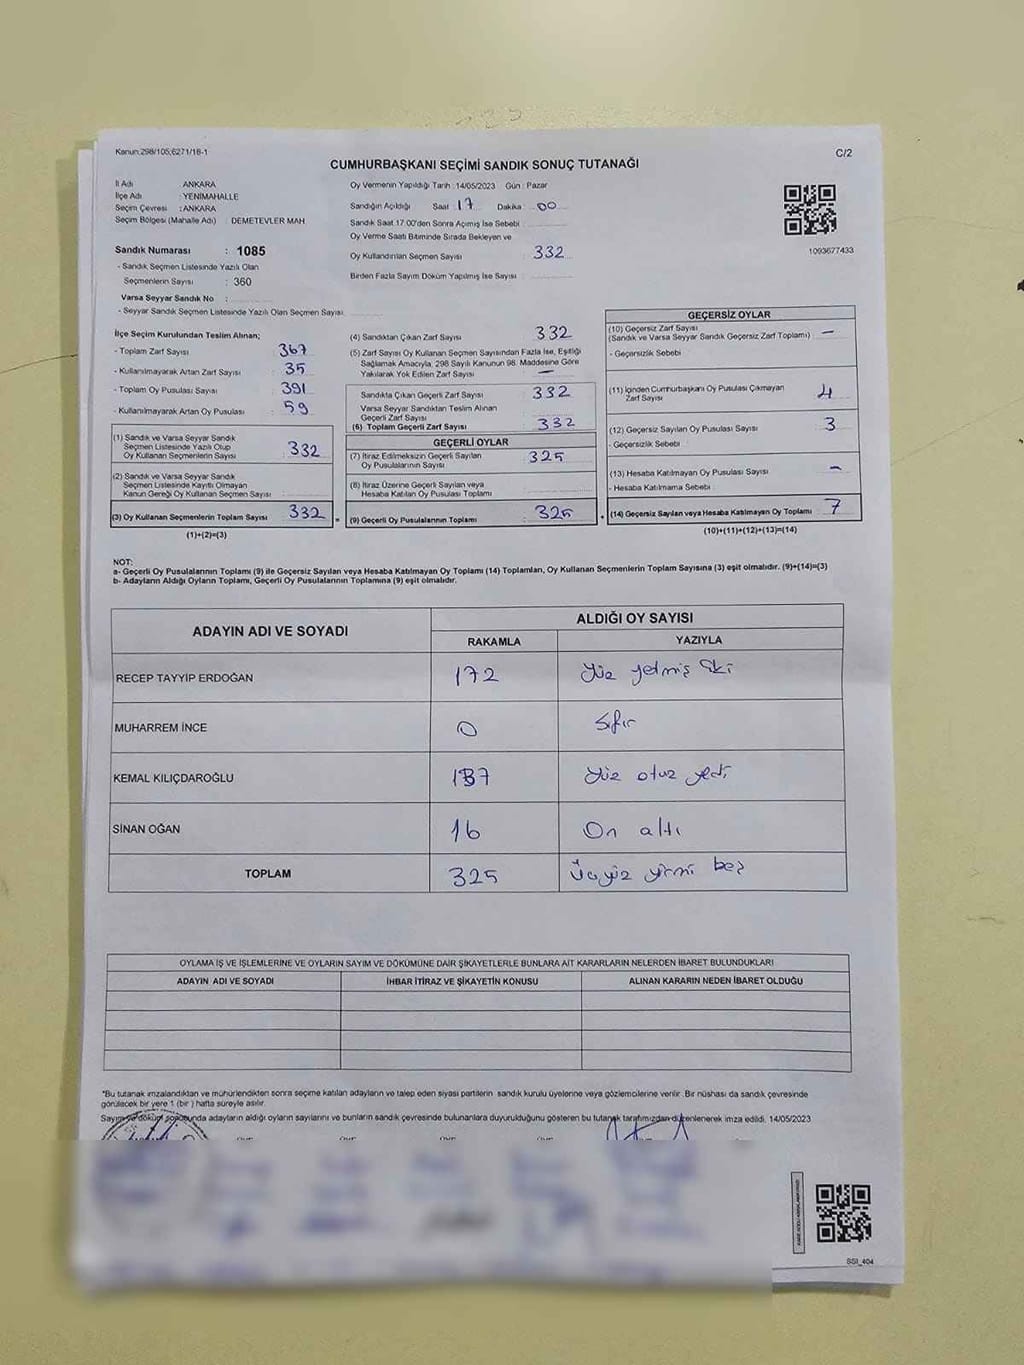 Kanun:298/105;6271/18-1
C/2
CUMHURBAŞKANI SEÇİMİ SANDIK SONUÇ TUTANAĞI
İl Adı ANKARA
İlçe Adı : YENİMAHALLE
Seçim Çevresi : ANKARA
Seçim Bölgesi (Mahalle Adı) : DEMETEVLER MAH
Sandık Numarası : 1085
- Sandık Seçmen Listesinde Yazılı Olan
Seçmenlerin Sayısı : 360
Varsa Seyyar Sandık No :
- Seyyar Sandık Seçmen Listesinde Yazılı Olan Seçmen Sayısı:
Oy Vermenin Yapıldığı Tarih : 14/05/2023 Gün : Pazar
Sandığın Açıldığı Saat : 17 Dakika : 00
Sandık Saat 17.00'den Sonra Açımış İse Sebebi :
Oy Verme Saati Bitiminde Sırada Bekleyen ve
Oy Kullandırılan Seçmen Sayısı : 332
Birden Fazla Sayım Döküm Yapılmış İse Sayısı :
1093677433
İlçe Seçim Kurulundan Teslim Alınan;
- Toplam Zarf Sayısı : 367
- Kullanılmayarak Artan Zarf Sayısı : 35
- Toplam Oy Pusulası Sayısı : 391
- Kullanılmayarak Artan Oy Pusulası : 59
(1) Sandık ve Varsa Seyyar Sandık
Seçmen Listesinde Yazılı Olup
Oy Kullanan Seçmenlerin Sayısı : 332
(2) Sandık ve Varsa Seyyar Sandık
Seçmen Listesinde Kayıtlı Olmayan
Kanun Gereği Oy Kullanan Seçmen Sayısı :
(3) Oy Kullanan Seçmenlerin Toplam Sayısı 332 =
(1)+(2)=(3)
(4) Sandıktan Çıkan Zarf Sayısı 332
(5) Zarf Sayısı Oy Kullanan Seçmen Sayısından Fazla İse, Eşitliği
Sağlamak Amacıyla; 298 Sayılı Kanunun 98. Maddesine Göre
Yakılarak Yok Edilen Zarf Sayısı : —
Sandıkta Çıkan Geçerli Zarf Sayısı : 332
Varsa Seyyar Sandıktan Teslim Alınan
Geçerli Zarf Sayısı :
(6) Toplam Geçerli Zarf Sayısı : 332
GEÇERLİ OYLAR
(7) İtiraz Edilmeksizin Geçerli Sayılan
Oy Pusulalarının Sayısı : 325
(8) İtiraz Üzerine Geçerli Sayılan veya
Hesaba Katılan Oy Pusulası Toplamı :
(9) Geçerli Oy Pusulalarının Toplamı : 325 +
GEÇERSİZ OYLAR
(10) Geçersiz Zarf Sayısı
(Sandık ve Varsa Seyyar Sandık Geçersiz Zarf Toplamı) : —
- Geçersizlik Sebebi :
(11) İçinden Cumhurbaşkanı Oy Pusulası Çıkmayan
Zarf Sayısı : 4
(12) Geçersiz Sayılan Oy Pusulası Sayısı : 3
- Geçersizlik Sebebi :
(13) Hesaba Katılmayan Oy Pusulası Sayısı : —
- Hesaba Katılmama Sebebi :
(14) Geçersiz Sayılan veya Hesaba Katılmayan Oy Toplamı : 7
(10)+(11)+(12)+(13)=(14)
NOT:
a- Geçerli Oy Pusulalarının Toplamı (9) ile Geçersiz Sayılan veya Hesaba Katılmayan Oy Toplamı (14) Toplamları, Oy Kullanan Seçmenlerin Toplam Sayısına (3) eşit olmalıdır. (9)+(14)=(3)
b- Adayların Aldığı Oyların Toplamı, Geçerli Oy Pusulalarının Toplamına (9) eşit olmalıdır.
ADAYIN ADI VE SOYADI ALDIĞI OY SAYISI
RAKAMLA YAZIYLA
RECEP TAYYIP ERDOĞAN 172 Yüz yetmiş iki
MUHARREM İNCE 0 Sıfır
KEMAL KILIÇDAROĞLU 137 Yüz otuz yedi
SİNAN OĞAN 16 On altı
TOPLAM 325 Üçyüz yirmi beş
OYLAMA İŞ VE İŞLEMLERİNE VE OYLARIN SAYIM VE DÖKÜMÜNE DAİR ŞİKAYETLERLE BUNLARA AİT KARARLARIN NELERDEN İBARET BULUNDUKLARI
ADAYIN ADI VE SOYADI İHBAR İTİRAZ VE ŞİKAYETİN KONUSU ALINAN KARARIN NEDEN İBARET OLDUĞU
*Bu tutanak imzalandıktan ve mühürlendikten sonra seçime katılan adayların ve talep eden siyasi partilerin sandık kurulu üyelerine veya gözlemcilerine verilir. Bir nüshası da sandık çevresinde
görülecek bir yere 1 (bir ) hafta süreyle asılır.
Sayım ve döküm sonucunda adayların aldığı oyların sayılarını ve bunların sandık çevresinde bulunanlara duyurulduğunu gösteren bu tutanak tarafımızdan düzenlenerek imza edildi. 14/05/2023
SSI_404